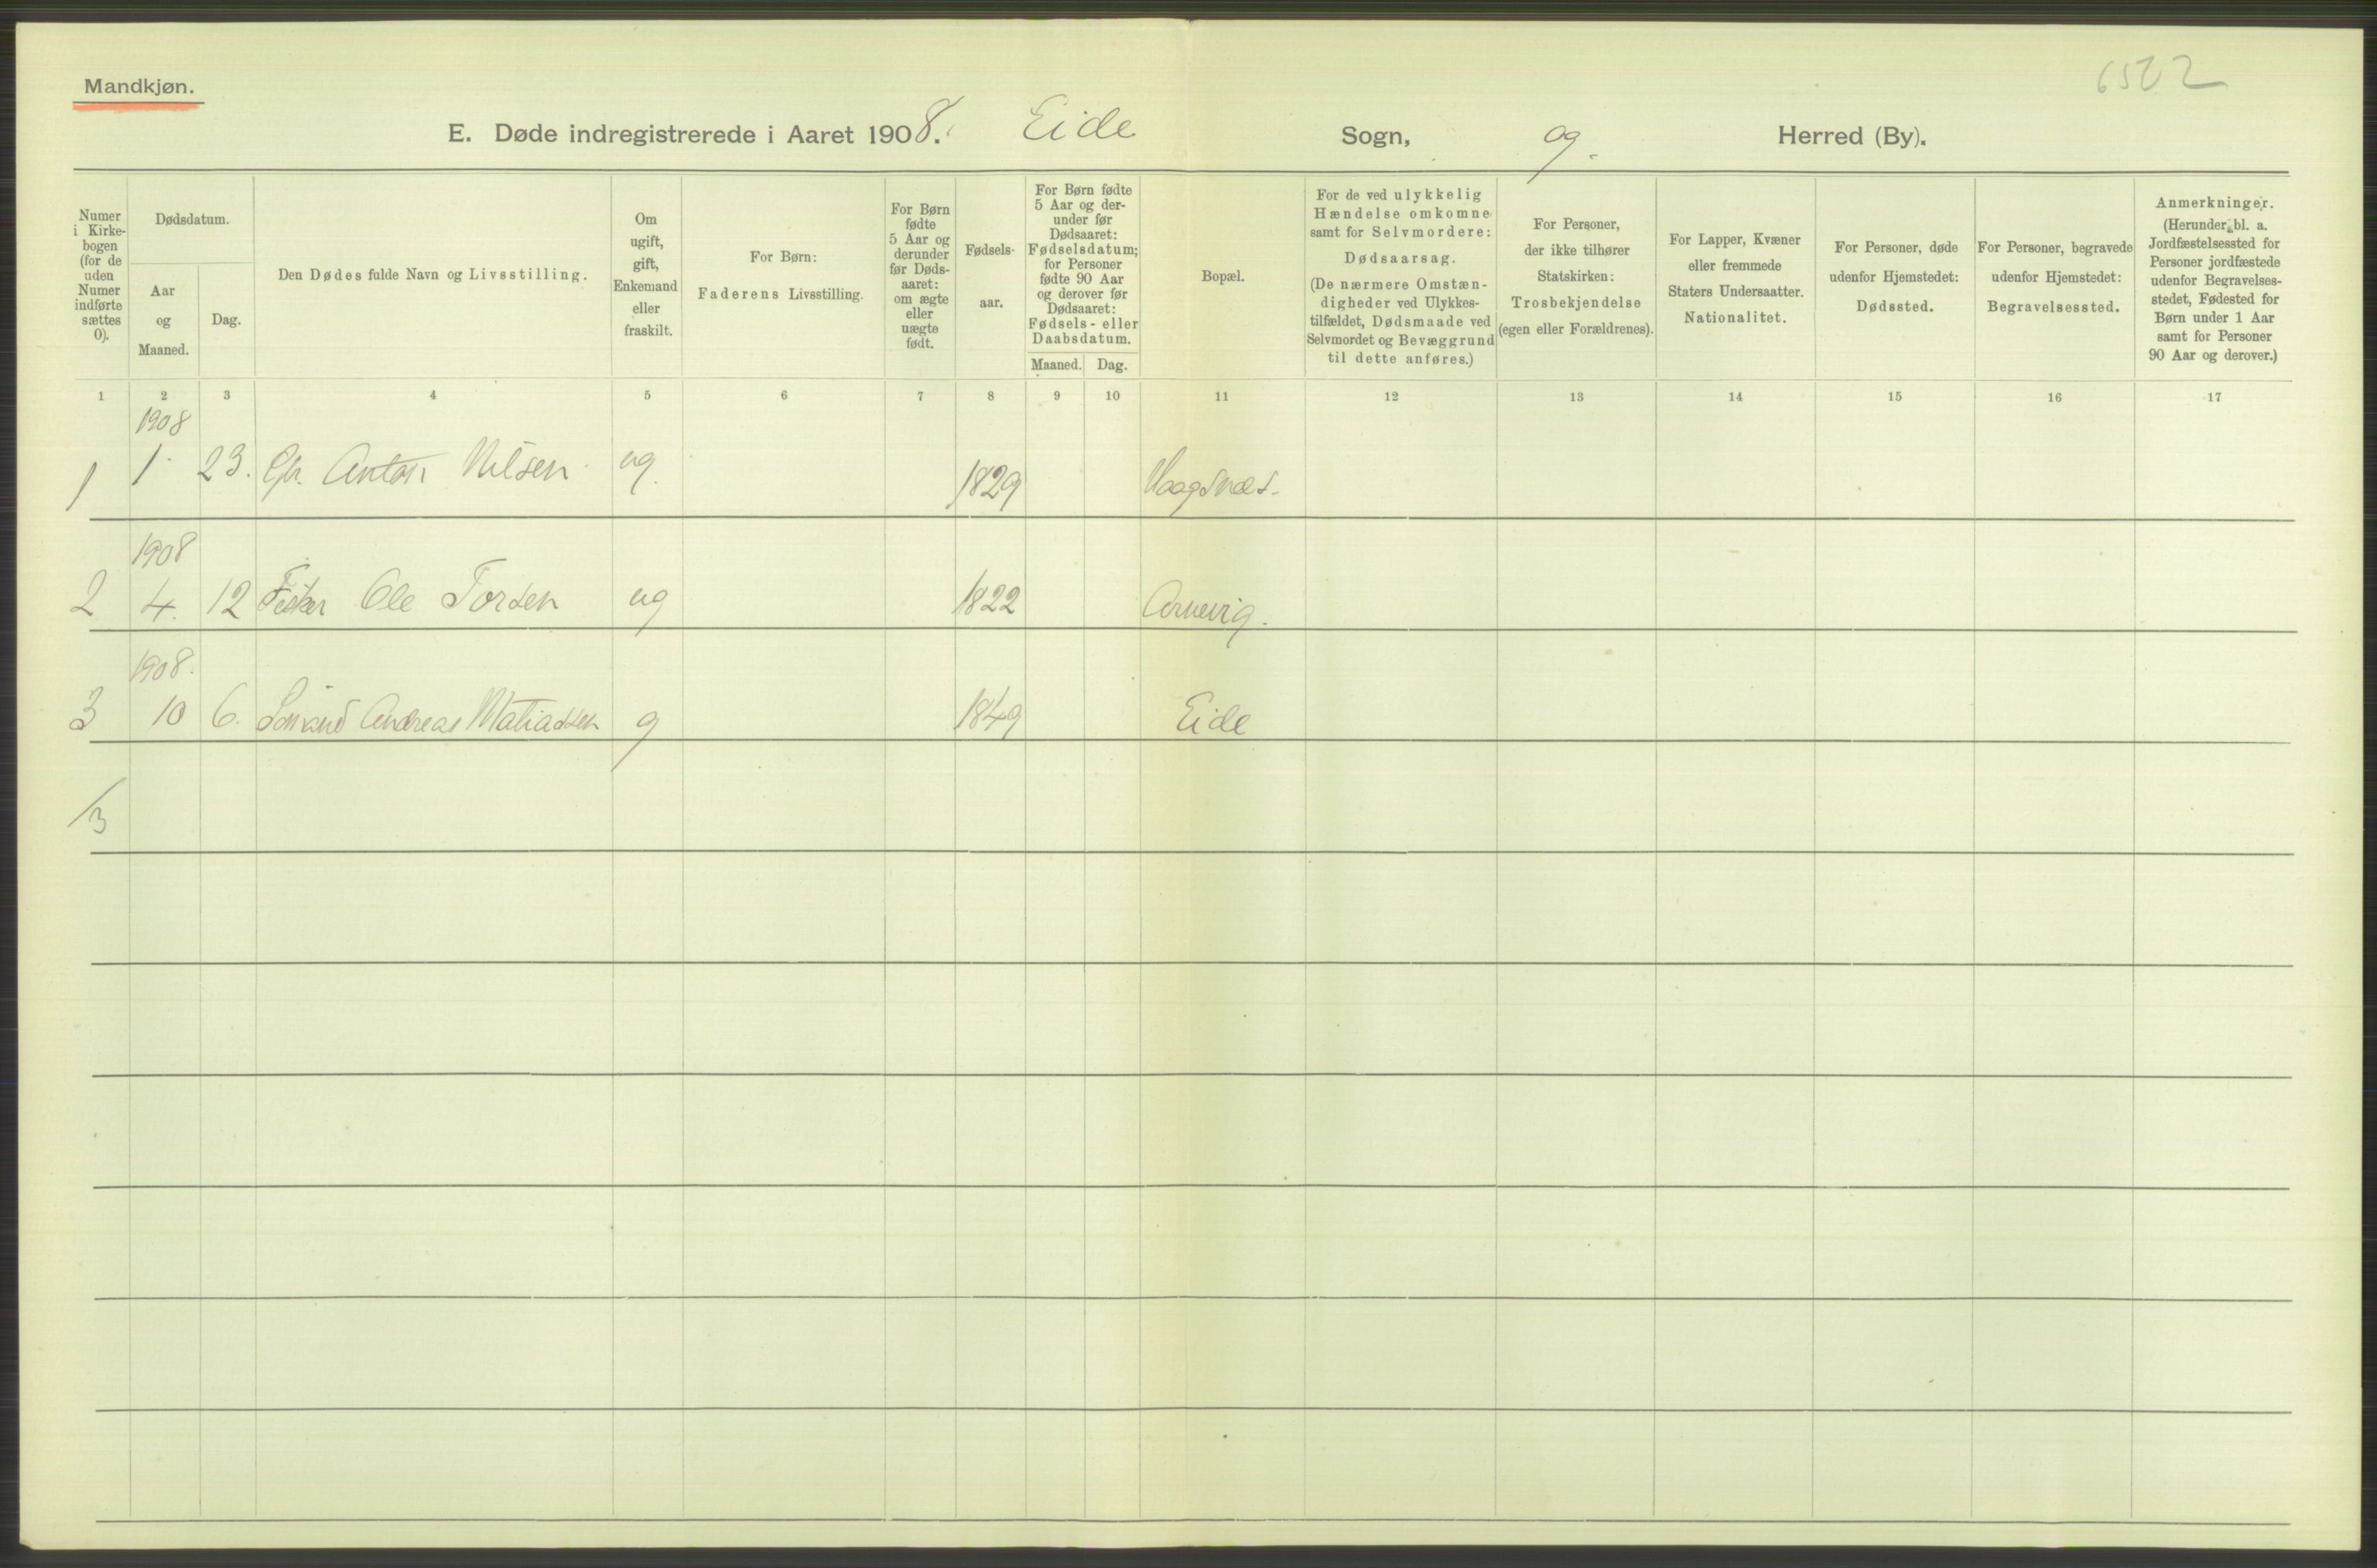 Mandkjøn.
E. Døde indregistrerede i Aaret 1908. Eide Sogn, og Herred (By).
Numer i Kirke-
bogen
(for de
uden
Numer
indførte
sættes
0).
Dødsdatum.
Aar
og
Maaned.
Dag.
Den Dødes fulde Navn og Livsstilling.
Om
ugift,
gift,
Enkemand
eller
fraskilt.
For Børn:
Faderens Livsstilling.
For Børn
fødte
5 Aar og
derunder
før Døds-
aaret:
om ægte
eller
uægte
født.
Fødsels-
aar.
For Børn fødte
5 Aar og der-
under før
Dødsaaret:
Fødselsdatum;
for Personer
fødte 90 Aar
og derover før
Dødsaaret:
Fødsels- eller
Daabsdatum.
Maaned. Dag.
Bopæl.
For de ved ulykkelig
Hændelse omkomne
samt for Selvmordere:
Dødsaarsag.
(De nærmere Omstæn-
digheder ved Ulykkes-
tilfældet, Dødsmaade ved
Selvmordet og Bevæggrund
til dette anføres.)
For Personer,
der ikke tilhører
Statskirken:
Trosbekjendelse
(egen eller Forældrenes).
For Lapper, Kvæner
eller fremmede
Staters Undersaatter.
Nationalitet.
For Personer, døde
udenfor Hjemstedet:
Dødssted.
For Personer, begravede
udenfor Hjemstedet:
Begravelsessted.
Anmerkninger.
(Herunder bl. a.
Jordfæstelsessted for
Personer jordfæstede
udenfor Begravelses-
stedet, Fødested for
Børn under 1 Aar
samt for Personer
90 Aar og derover.)
1 2 3 4 5 6 7 8 9 10 11 12 13 14 15 16 17
1908
1 1 23. Anton Nilsen ug. 1829
1908
2 4. 12 Fisker Ole Torsen ug 1822 Arnevig.
1908.
3 10 6. Andreas Matiassen g 1849 Eide
/3